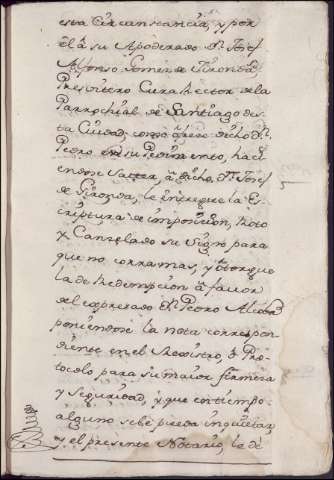 esta Circunstancia, y por
él a su Apoderado Dn. Josef
Alfonso Gomez de Tironda,
Presvitero Cura Rector de la
Parrochial de Santiago des-
ta Ciudad, como qe. de dicho Dn.
Pedro en su Pedimento, haci
endose saver a dicho Dn. Josef
de Tironda, le entregue la Es
criptura de imposicion, Roto
y Canzelado su Signo para
que no corra mas, y otorgue
la de Redempcion a favor
del expresado Dn. Pedro
poniendose la nota correspon
diente en el Registro, o Pro-
tocolo para su maior firmeza
y Seguridad, y que en tiempo
alguno se le pueda inquietar,
y el presente Notario, le dé